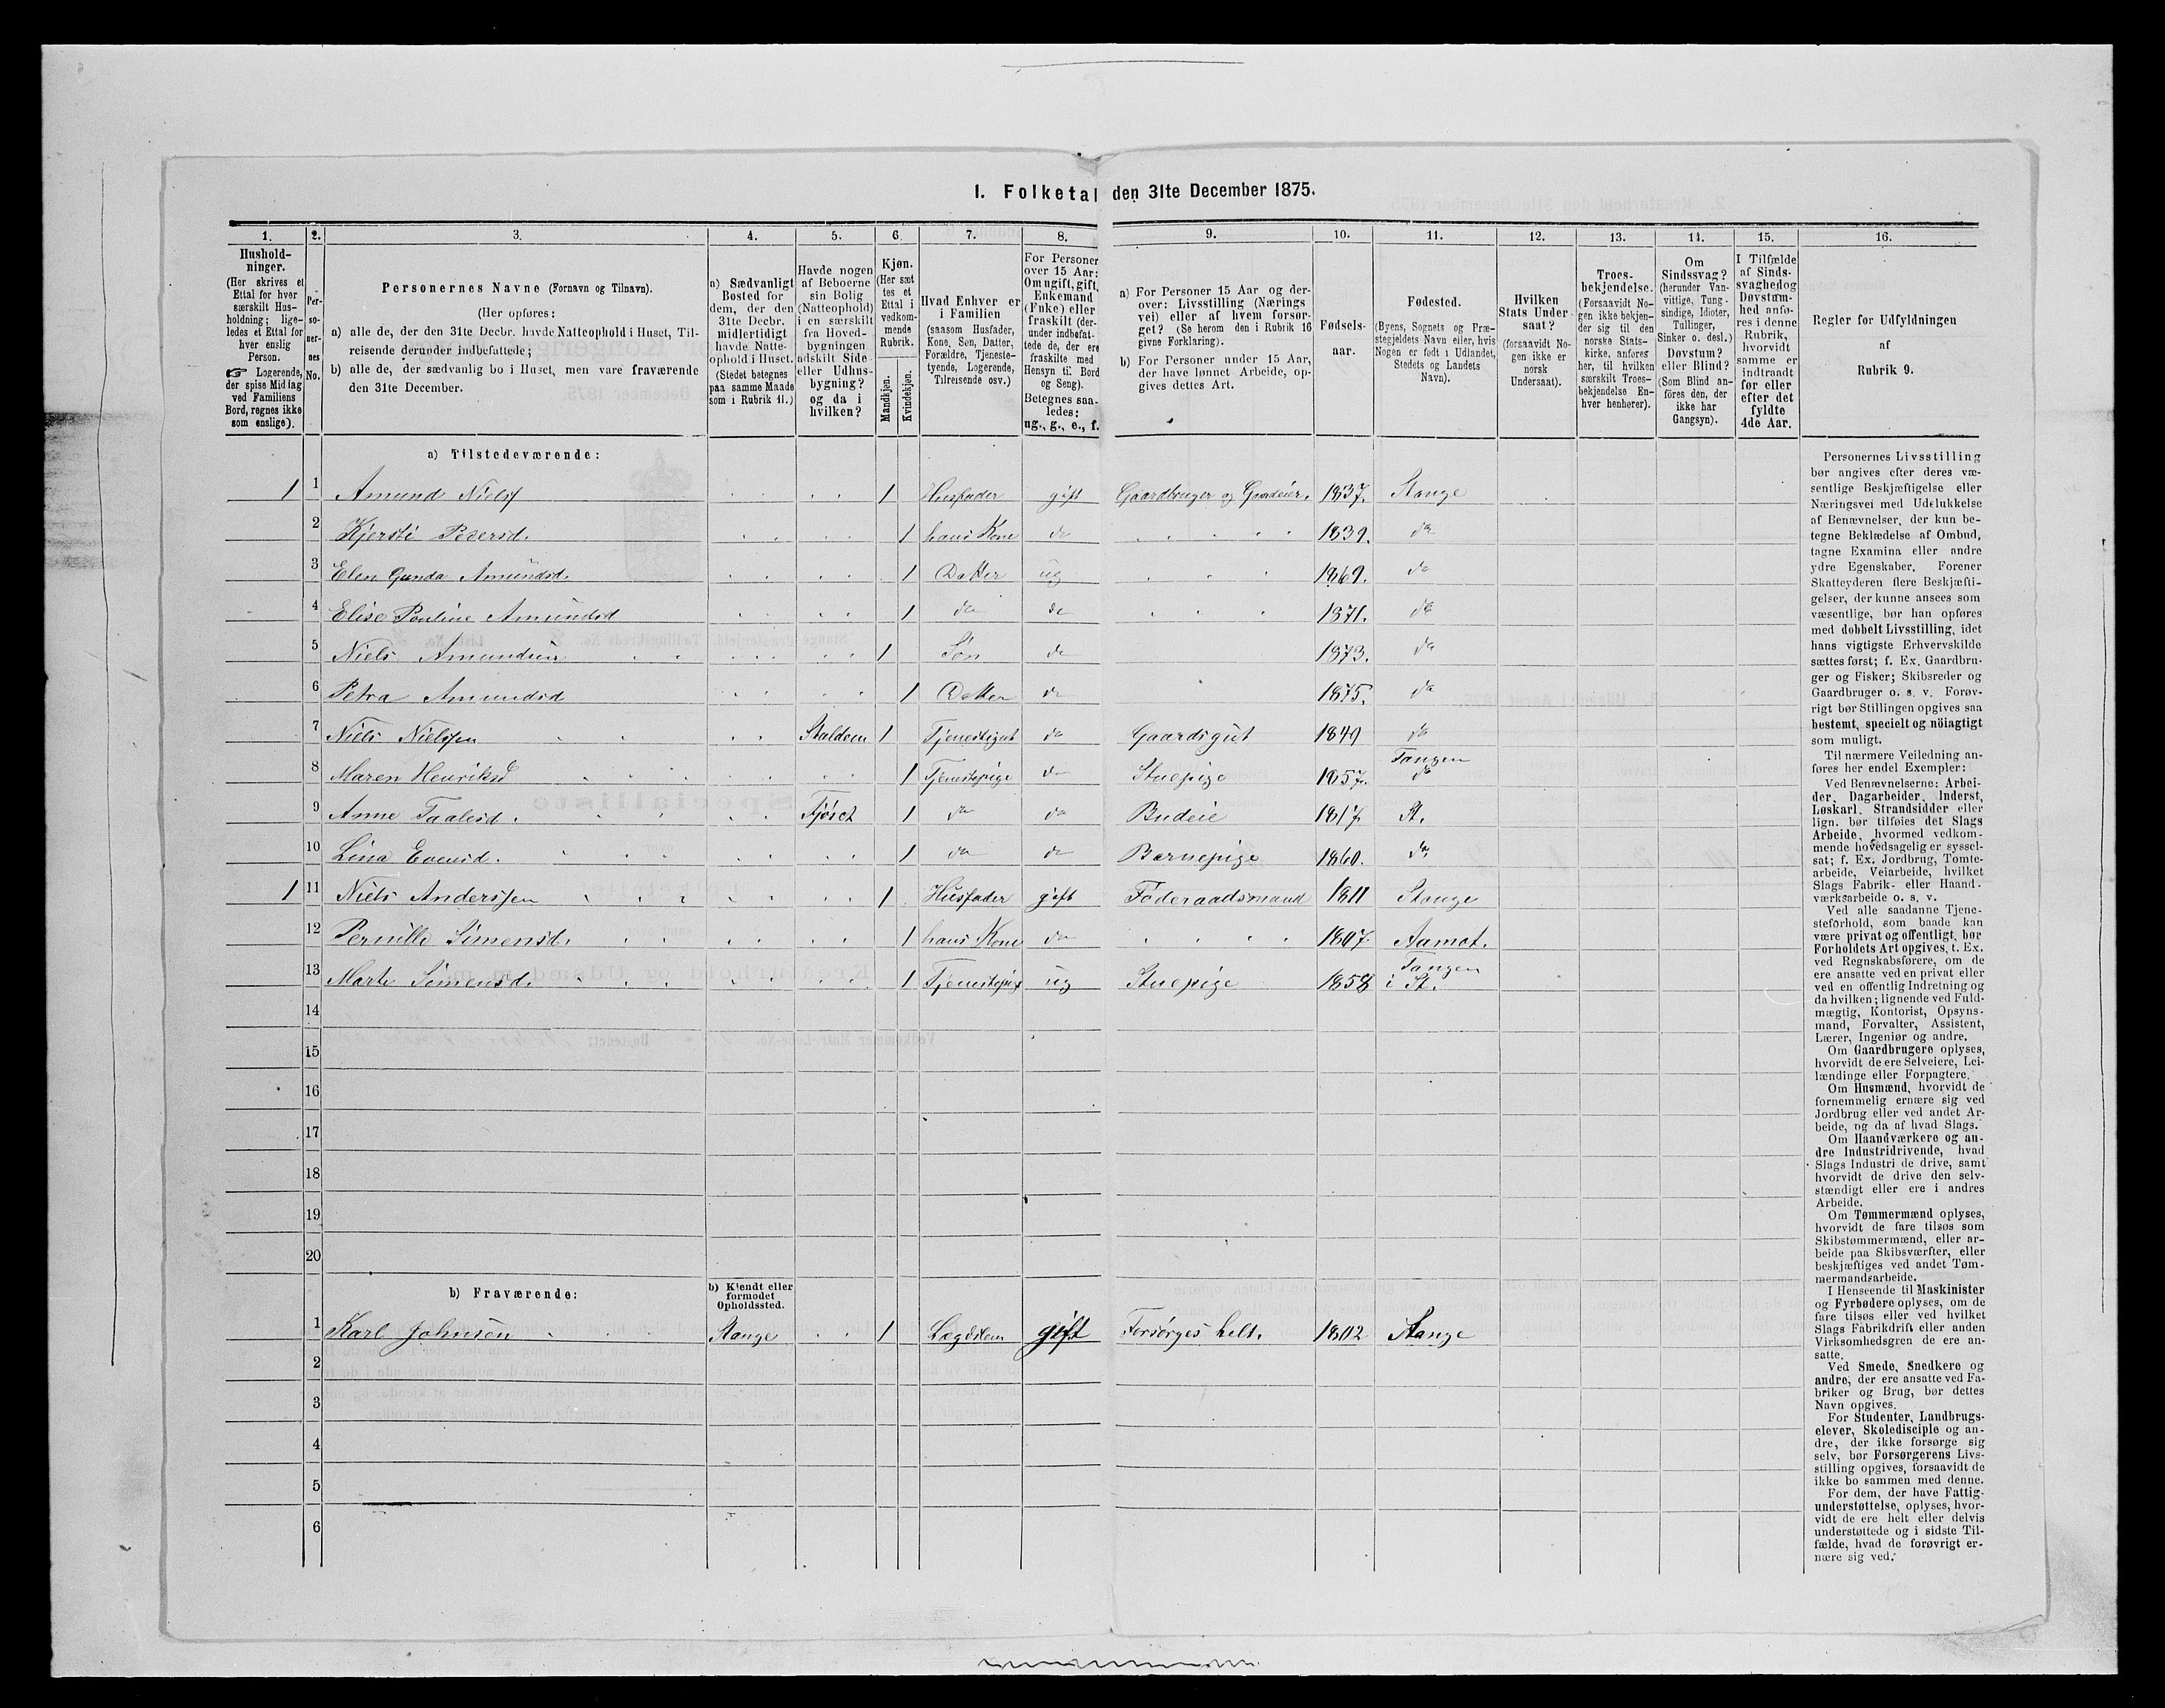 I. Folketal den 31te December 1875.
1. 2. 3. 4. 5. 6. 7. 8. 9. 10. 11. 12. 13. 14. 15. 16.
Hushold-
ninger.
(Her skrives et
Ettal for hver
særskilt Hus-
holdning; lige-
ledes et Ettal for
hver enslig
Person.
☞ Logerende,
der spise Middag
ved Familiens
Bord, regnes ikke
som enslige).
Per-
so-
ner-
nes
No.
Personernes Navne (Fornavn og Tilnavn).
(Her opføres:
a) alle de, der den 31te Decbr. havde Natteophold i Huset, Til-
reisende derunder indbefattede;
b) alle de, der sædvanlig bo i Huset, men vare fraværende
den 31te December.
a) Sædvanligt
Bosted for
dem, der den
31te Decbr.
midlertidigt
havde Natte-
ophold i Huset.
(Stedet betegnes
paa samme Maade
som i Rubrik 11.)
Havde nogen
af Beboerne
sin Bolig
(Natteophold)
i en særskilt
fra Hoved-
bygningen
adskilt Side
eller Udhus-
bygning?
og da i
hvilken?
Kjøn.
(Her sæt
tes et
Ettal i
vedkom-
mende
Rubrik.
Mandkjøn.
Kvindekjøn.
Hvad Enhver er
i Familien
(saasom Husfader,
Kone, Søn, Datter,
Forældre, Tjeneste-
tyende, Logerende,
Tilreisende osv.)
For Personer
over 15 Aar:
Om ugift, gift,
Enkemand
(Enke) eller
fraskilt (der-
under indbefat-
tede de, der ere
fraskilte med
Hensyn til Bord
og Seng).
Betegnes saa-
ledes:
ug., g., e., f.
a) For Personer 15 Aar og der-
over: Livsstilling (Nærings
vei) eller af hvem forsør-
get? (Se herom den i Rubrik 16
givne Forklaring).
b) For Personer under 15 Aar,
der have lønnet Arbeide, op-
gives dettes Art.
Fødsels-
aar.
Fødested.
(Byens, Sognets og Præ-
stegjeldets Navn eller, hvis
Nogen er født i Udlandet,
Stedets og Landets
Navn).
Hvilken
Stats Under-
saat?
(forsaavidt No-
gen ikke er
norsk
Undersaat).
Troes-
bekjendelse.
(Forsaavidt No-
gen ikke bekjen-
der sig til den
norske Stats-
kirke, anføres
her, til hvilken
særskilt Troes-
bekjendelse En-
hver henhører).
Om
Sindssvag?
(herunder Van-
vittige, Tung-
sindige, Idioter,
Tullinger,
Sinker o. desl.)
Døvstum?
eller Blind?
(Som Blind an-
føres den, der
ikke har
Gangsyn).
I Tilfælde
af Sinds-
svaghed og
Døvstum-
hed anfø-
res i denne
Rubrik,
hvorvidt
samme er
indtraadt
før eller
efter det
fyldte
4de Aar.
Regler for Udfyldningen
af
Rubrik 9.
a) Tilstedeværende:
1 1 Amund Niels 1 Husfader gift Gaardbruger og Gaardeier. 1837. Stange
2 Kjersti Pedersd. 1 hans Kone do 1839. do
3 Elen Gunda Amundsd. 1 Datter ug 1869. do
4 Elise Pauline Amundsd 1 do do 1871. do
5 Niels Amundsen 1 Søn do 1873. do
6 Petra Amundsd 1 Datter do 1875. do
7 Niels Nielssen Stalden 1 Tjenestegut do Gaardsgut 1849 do
8 Maren Henriksd 1 Tjenestepige do Stuepige 1857. Tangen
do
9 Anne Taalesd. Fjöset 1 do do Budeie 1817 St.
10 Lina Evensd. 1 do do Barnepige 1860. do.
1 11 Niels Anderssen 1 Husfader gift Föderaadsmand 1811 Stange
12 Pernille Simensd. 1 hans Kone do 1807. Aamot.
13 Marte Simensd. 1 Tjenestepig ug Stuepige 1858 Tangen
i St.
14
15
16
17
18
19
20
b) Fraværende:
b) Kjendt eller
formodet
Opholdssted.
1 Karl Johnsen Stange 1 Lægdslem gift Forsørges helt. 1802 Stange
2
3
4
5
6
Personernes Livsstilling
bør angives efter deres væ-
sentlige Beskjæftigelse eller
Næringsvei med Udelukkelse
af Benævnelser, der kun be-
tegne Beklædelse af Ombud,
tagne Examina eller andre
ydre Egenskaber. Forener
Skatteyderen flere Beskjæfti-
gelser, der kunne ansees som
væsentlige, bør han opføres
med dobbelt Livsstilling, idet
hans vigtigste Erhvervskilde
sættes først; f. Ex. Gaardbru-
ger og Fisker; Skibsreder og
Gaardbruger o. s. v. Forøv-
rigt bør Stillingen opgives saa
bestemt, specielt og nöiagtigt
som muligt.
Til nærmere Veiledning an-
føres her endel Exempler:
Ved Benævnelserne: Arbei-
der, Dagarbeider, Inderst,
Løskarl, Strandsidder eller
lign. bør tilføies det Slags
Arbeide, hvormed vedkom-
mende hovedsagelig er syssel-
sat; f. Ex. Jordbrug, Tomte-
arbeide, Veiarbeide, hvilket
Slags Fabrik- eller Haand-
værksarbeide o. s. v.
Ved alle saadanne Tjene-
steforhold, som baade kan
være privat og offentligt, bør
Forholdets Art opgives, t. Ex.
ved Regnskabsførere, om de
ere ansatte ved en privat eller
ved en offentlig Indretning og
da hvilken; lignende ved Fuld-
mægtig, Kontorist, Opsyns-
mand, Forvalter, Assistent,
Lærer, Ingeniør og andre.
Om Gaardbrugere oplyses,
hvorvidt de ere Selveiere, Lei-
lændinge eller Forpagtere.
Om Husmænd, hvorvidt de
fornemmelig ernære sig ved
Jordbrug eller ved andet Ar-
beide, og da af hvad Slags.
Om Haandværkere og an-
dre Industridrivende, hvad
Slags Industri de drive, samt
hvorvidt de drive den selv-
stændigt eller ere i andres
Arbeide.
Om Tømmermænd oplyses,
hvorvidt de fare tilsøs som
Skibstømmermænd, eller ar-
beide paa Skibsværfter, eller
beskjæftiges ved andet Tøm-
mermandsarbeide.
I Henseende til Maskinister
og Fyrbødere oplyses, om de
fare tilsøs eller ved hvilket
Slags Fabrikdrift eller anden
Virksomhedsgren de ere an-
satte.
Ved Smede, Snedkere og
andre, der ere ansatte ved Fa-
briker og Brug, bør dettes
Navn opgives.
For Studenter, Landbrugs-
elever, Skoledisciple og an-
dre, der ikke forsørge sig
selv, bør Forsørgerens Livs-
stilling opgives, forsaavidt de
ikke bo sammen med denne.
For dem, der have Fattig-
understøttelse, oplyses, hvor-
vidt de ere helt eller delvis
understøttede og i sidste Til-
fælde, hvad de forøvrigt er-
nære sig ved.